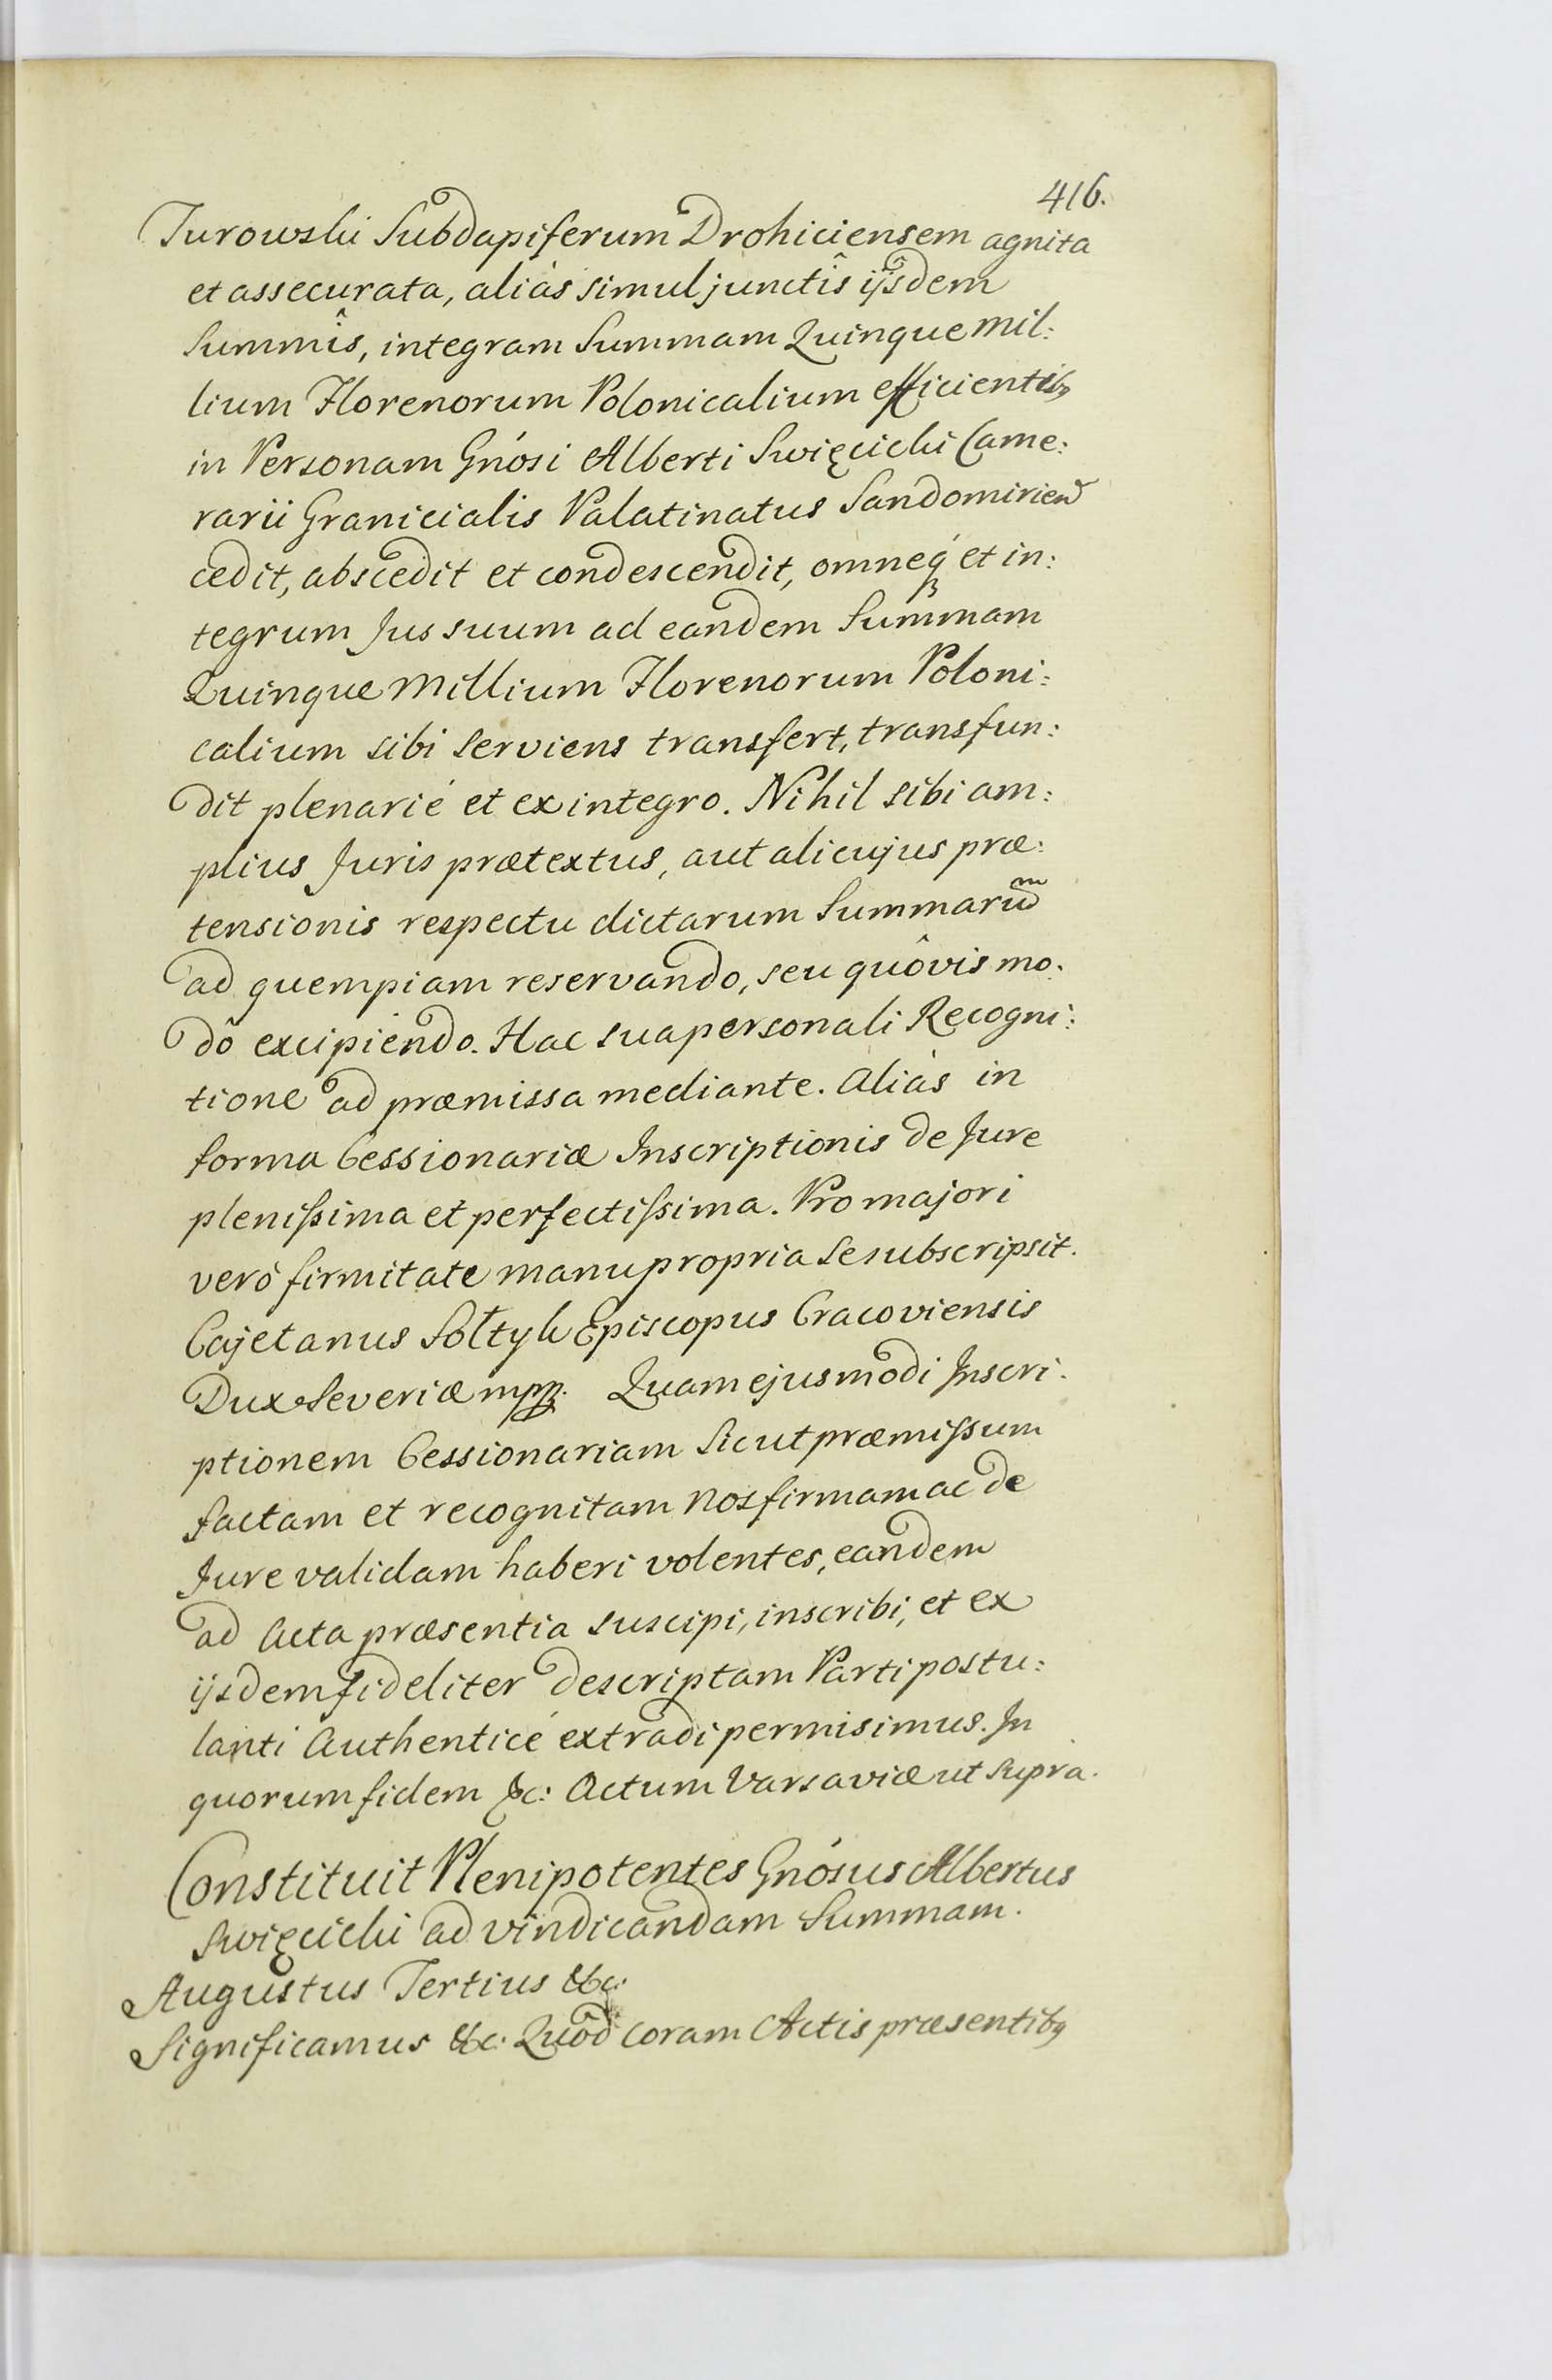 416.
Turowski Subdapiferum Drohiciensem agnita
et assecurata, aliàs simul junctîs iisdem
Summîs, integram Summam Quinque mil:
lium Florenorum Polonicalium efficientibꝰ
in Personam Gnósi Alberti Swięcicki Came:
rarii Granicialis Palatinatus Sandomirien
cedit, abscedit et condescendit, omneqꝫ et in:
tegrum Jus suum ad eandem Summam
Quinque Millium Florenorum Poloni:
calium sibi serviens transfert, transfun:
dit plenariè et ex integro. Nihil sibi am:
plius Juris prætextus, aut alicujus præ:
tensionis respectu dictarum Summarum
ad quempiam reservando, seu quôvis mo:
dô excipiendo. Hac sua personali Recogni:
tione ad præmissa mediante. Aliàs in
forma Cessionariæ Inscriptionis de Jure
plenissima et perfectissima. Pro majori
verò firmitate manu propria se subscripsit.
Cajetanus Sołtyk Episcopus Cracoviensis
Dux Severiæ mpp. Quam ejusmodi Inscri:
ptionem Cessionariam Sicut præmissum
factam et recognitam Nos firmam ac de
Jure validam haberi volentes, eandem
ad Acta præsentia suscipi, inscribi, et ex
iisdem fideliter descriptam Parti postu:
lanti Authenticè extradi permisimus. In
quorum fidem &c: Actum Varsaviæ ut supra.
Constituit Plenipotentes Gnósus Albertus
Swięcicki ad vindicandam Summam.
Augustus Tertius &c:
Significamus &c. Quod coram Actis præsentibꝰ